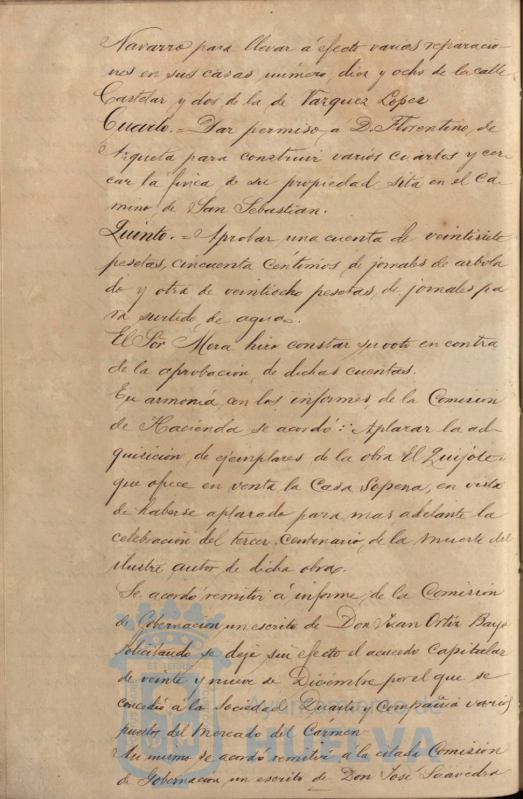 Navarro para llevar á efecto varias reparacio-
nes en sus casas número, diez y ocho de la calle
Castelar y dos de la de Vazquez Lopez
Cuarto. = Dar permiso á D. Florentino, de
Azqueta para construir varios cuartos y cer-
car la finca de su propiedad sita en el Ca-
mino de San Sebastian.
Quinto. = Aprobar una cuenta de veintisiete
pesetas, cincuenta centimos, de jornales de arbola
do y otra de veintiocho pesetas, de jornales pa
ra surtido de agua.
El Sor Mora hizo constar su voto en contra
de la aprobación de dichas cuentas.
En armonía con los informes de la Comision
de Hacienda se acordó: Aplazar la ad-
quisición de ejemplares de la obra El Quijote
que ofrece en venta la Casa Sopena, en vista
de haberse aplazado para mas adelante la
celebración del tercer Centenario de la muerte del
ilustre autor de dicha obra.
Se acordó remitir á informe de la Comisión
de Gobernación un escrito de Don Juan Ortiz
solicitando se deje sin efecto el acuerdo Capitular
de veinte y nueve de Diciembre por el que se
concedió á la Sociedad Duarte y Compañia varios
puestos del Mercado del Carmen
Asi mismo se acordó remitir á la citada Comisión
de Gobernación un escrito de Don José Saavedra
Ayuntamiento de
HUELVA